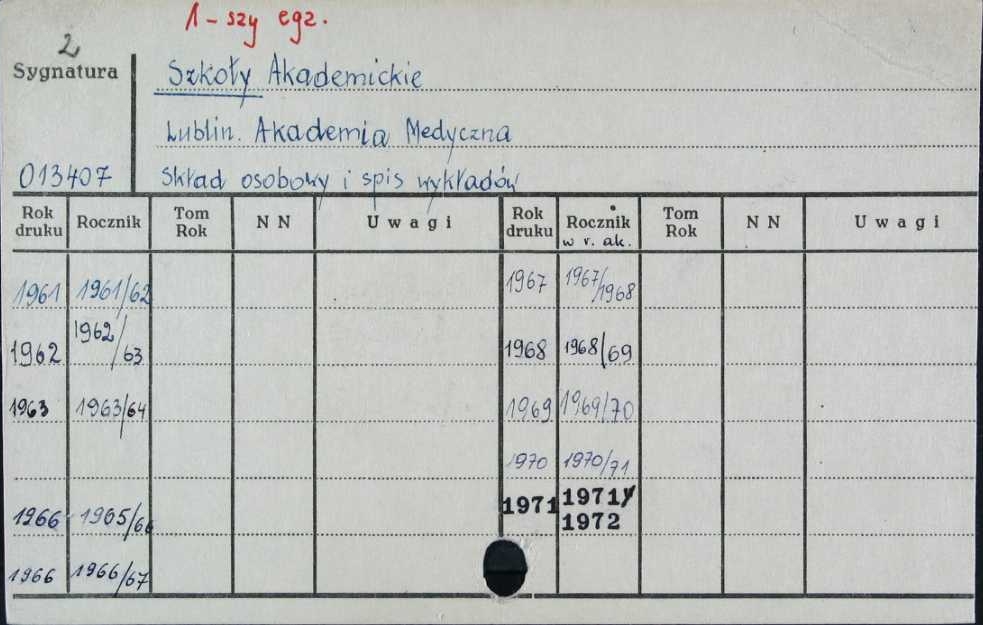 1-szy egz.
2
Sygnatura
Szkoły Akademickie
Lublin. Akademia Medyczna
013407 Skład osobowy i spis wykładów
Rok druku Rocznik Tom Rok N N Uwagi Rok druku Rocznik w r. ak. Tom Rok N N Uwagi
1961 1961/62 1967 1967/1968
1962 1962/63 1968 1968/69
1963 1963/64 1969 1969/70
1970 1970/71
1966 1965/66 1971 1971/1972
1966 1966/67